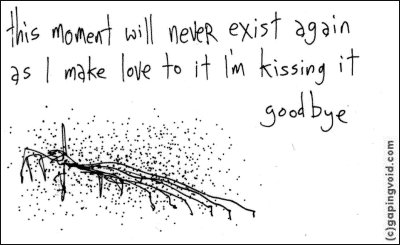 this moment will never exist again
as I make love to it I'm kissing it
goodbye
(c)gapingvoid.com